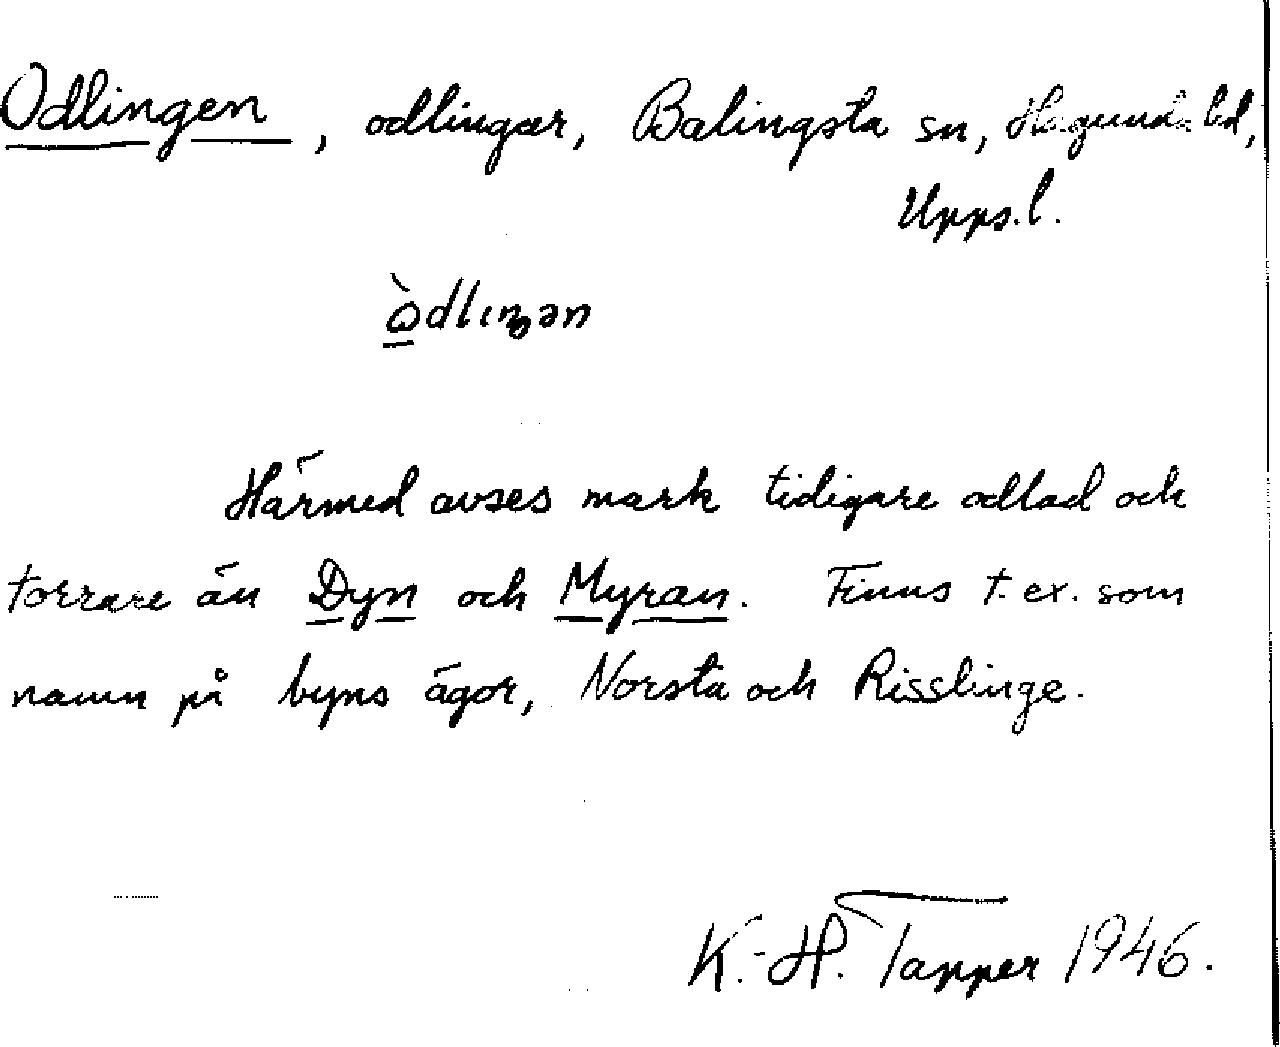 Odlingen, odlingar, Balingsta sn, Hagunda hd,
Upps.l.
ὼdlıŋən
Härmed avses mark tidigare odlad och
torrare än Dyn och Myran. Finns t.ex. som
namn på byns ägor, Norsta och Risslinge.
K.-H. Tapper 1946.